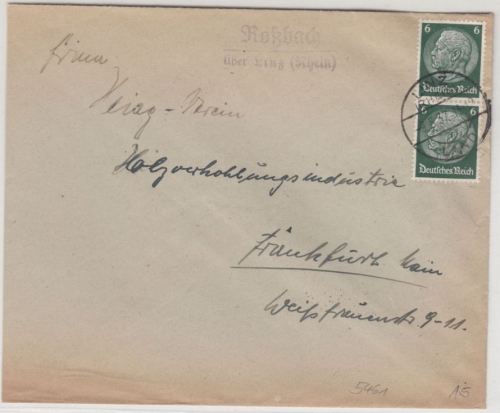 Roßbach
über Linz (Rhein)
6 6
Deutsches Reich
6 6
Deutsches Reich
Firma
Hiag-Verein
Holzverkohlungsindustrie
Frankfurt Main
Weißfrauenstr 9-11.
5461
15